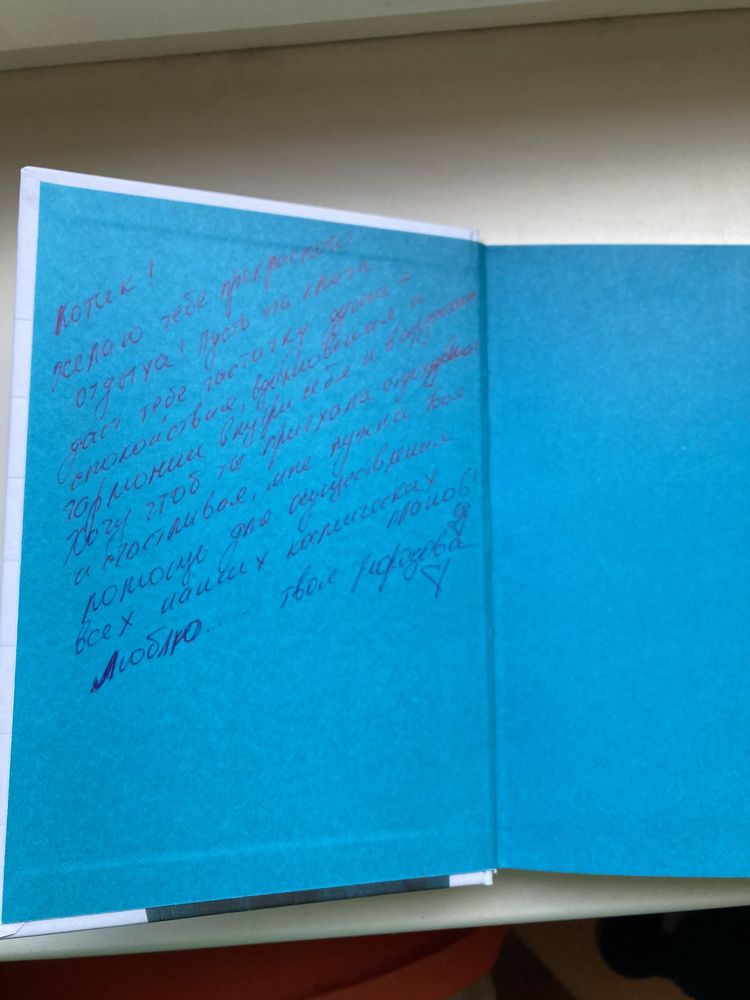 Котик!
желаю тебе прекрасного
отдыха! Пусть эта книга
даст тебе частичку души –
спокойствия, вдохновения и
гармонии внутри себя и
Хочу чтоб ты приехала отдохнувшая
и счастливая, мне нужна твоя
помощь для осуществления
всех наших космических
планов!
Люблю.... твоя